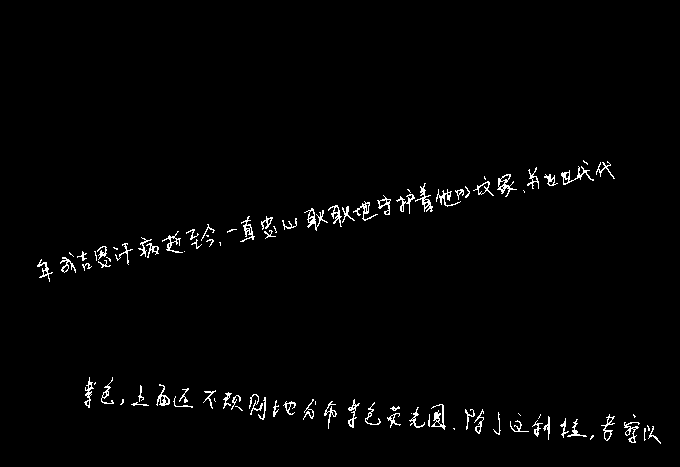 年成吉思汗病逝至今,一直忠心耿耿地守护着他的坟冢,并世世代代
紫色,上面还不规则地分布紫色荧光圆.除了这利桂,考察队